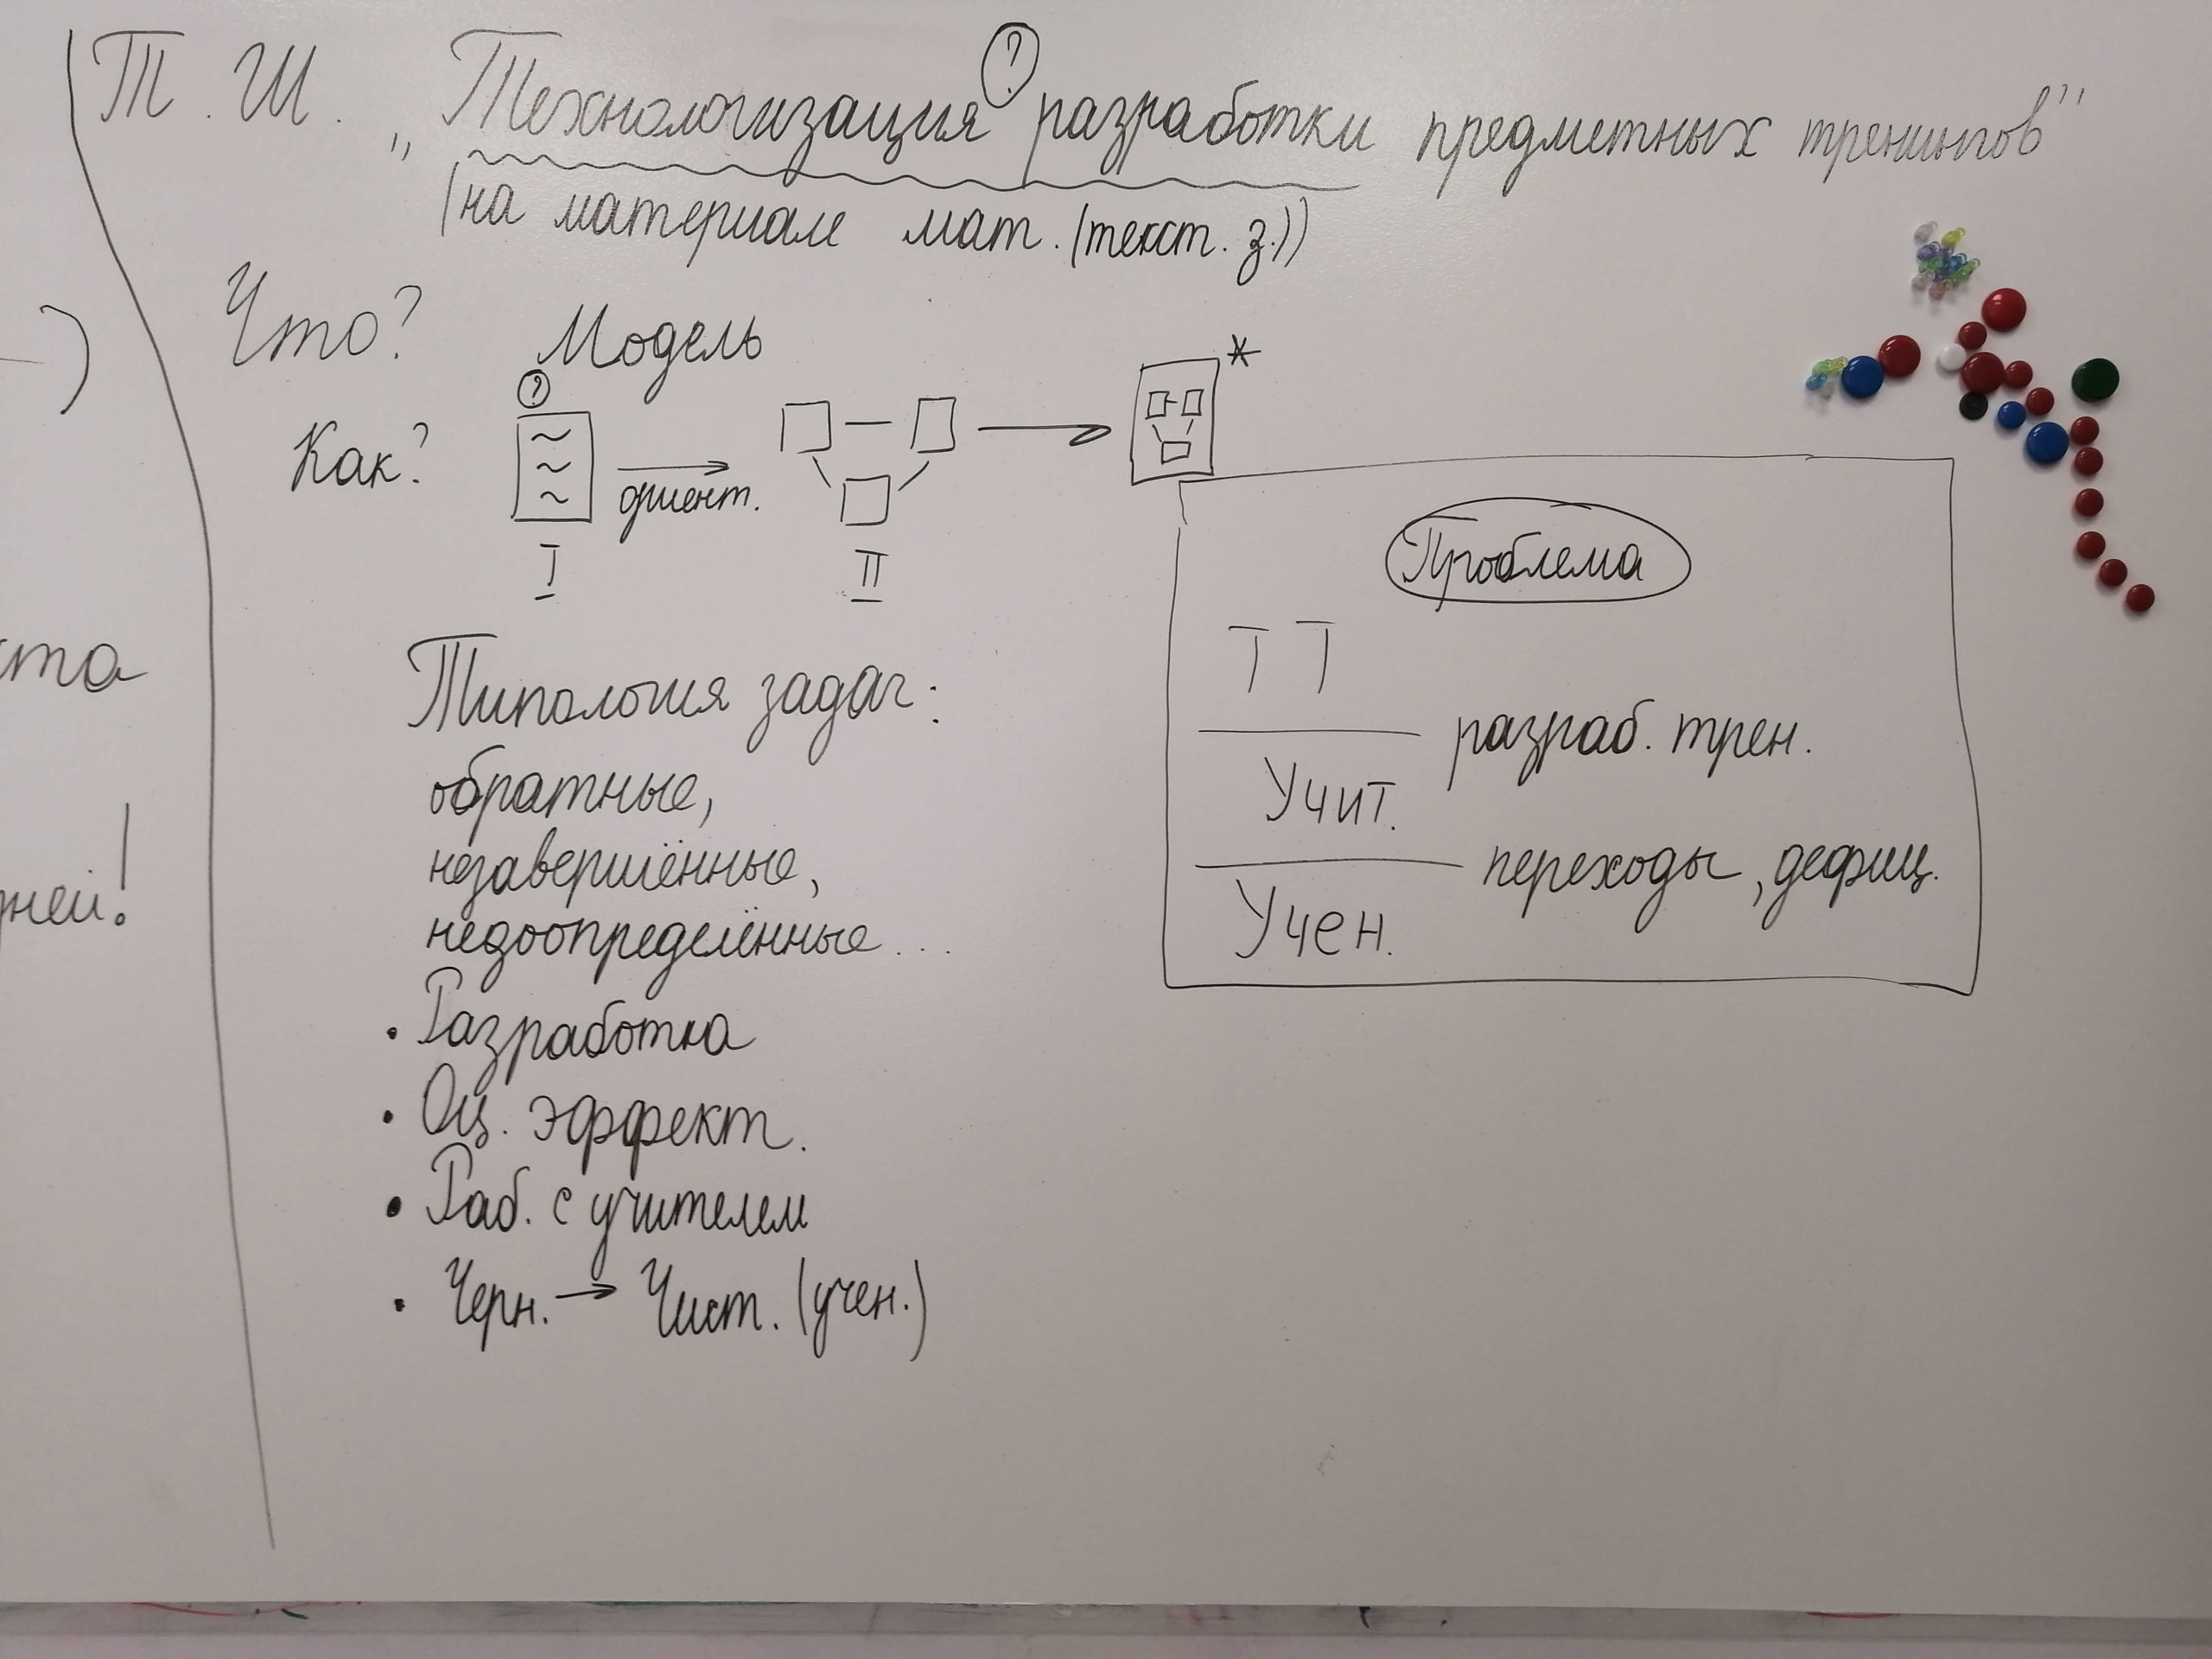 Т. Ш. „Технологизация разработки предметных тренингов"
?
(на материале мат. (текст. з.))
Что? Модель
?
Как?
ориент.
*
I II
Типология задач:
обратные,
незавершённые,
недоопределённые...
• Разработка
• Оц. эффект.
• Раб. с учителем
• Черн. → Чист. (учен.)
Проблема
ТТ
разраб. трен.
Учит.
переходы, дефиц.
Учен.